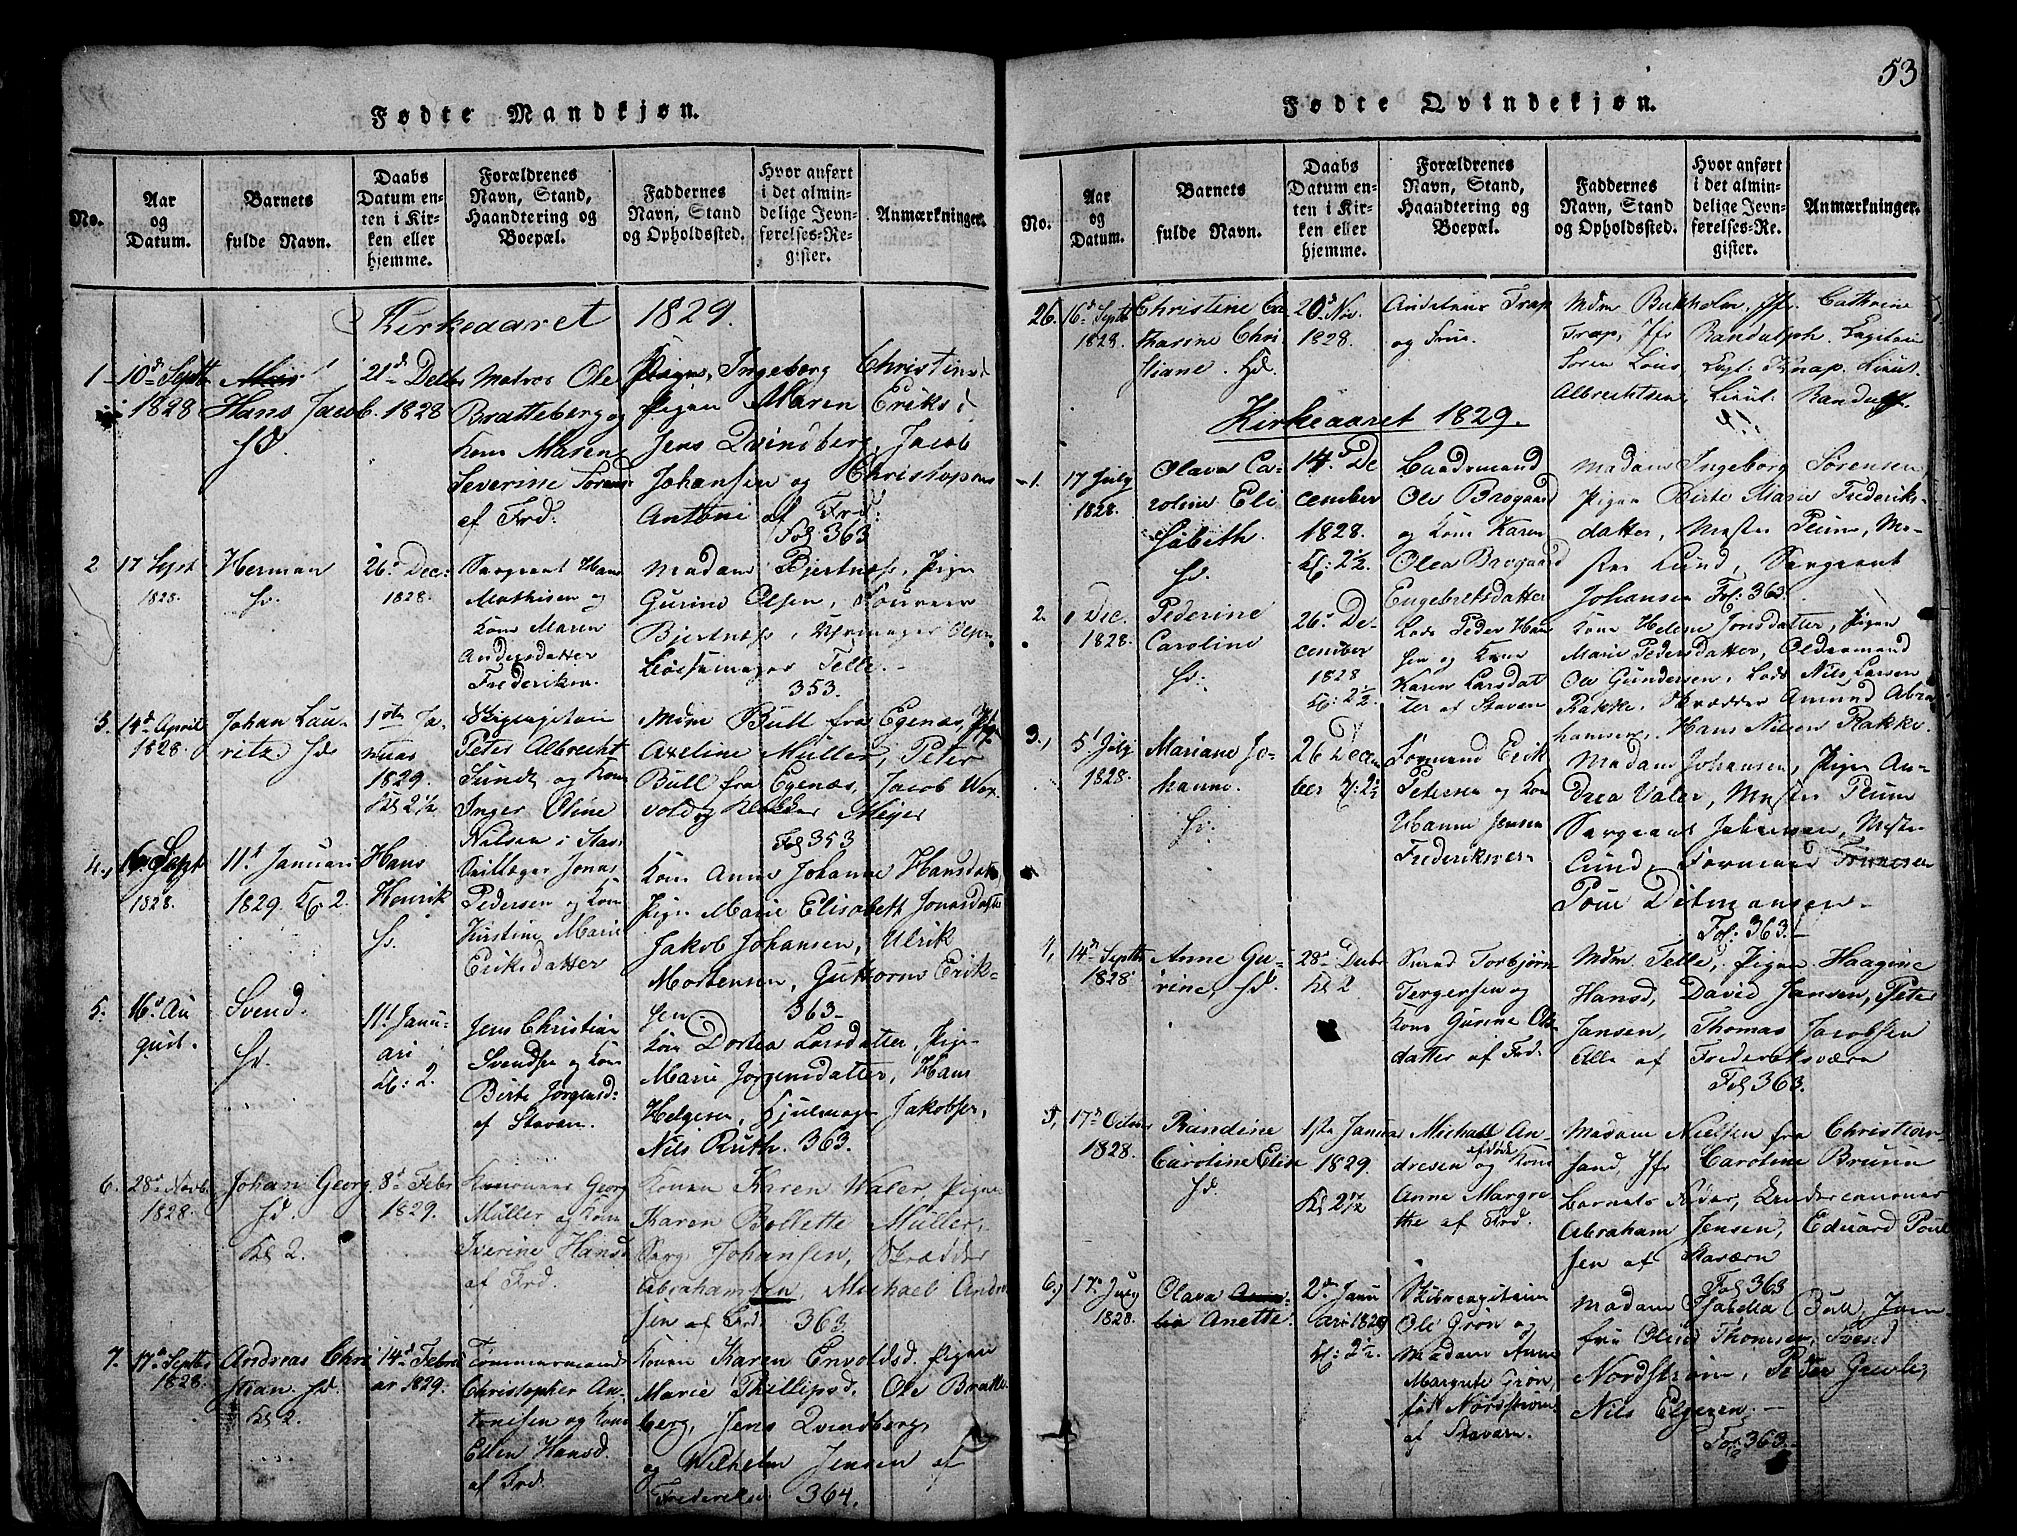 53
Fødte Mandkjøn.
No.
Aar
og
Datum.
Barnets
fulde Navn.
Daabs
Datum en-
ten i Kir-
ken eller
hjemme.
Forældrenes
Navn, Stand,
Haandtering og
Boepæl.
Faddernes
Navn, Stand
og Opholdssted.
Hvor anført
i det almin-
delige Jevn-
førelses-Re-
gister.
Anmærkninger.
Kirkeaaret 1829.
1
10d Septbr
1828
Hans Jacob
hd.
21d Decbr
1828
Matros Ole
Bratteberg og
Kone Maren
Severine
af Frd.
Pigen Ingeborg Christinsd
Pigen Maren Eriksd
Jens Qvindberg, Jacob
Johansen og Christopher
Antoni af Frd:
Fol 363
2
17 Sept
1828.
Herman
hd.
26d Dec:
1828.
Sergeant Hans
Mathisen og
Kone Maren
Andersdatter
Frederiksv.
Madam Bjertnæs, Pigen
Gurine Olsen,
Bjertnæs, Uhrmager Olsen
Bøssemager Telle.
353.
3.
14d April
1828.
Johan Lau-
ritz hd
1ste Ja-
nuar
1829.
Kl 2½
Peter Albrecht
Sundt og Kone
Inger Oline
Nilsen i Stav
Mdm Bull fra Egenæs,
Axeline Müller, Peter
Bull fra Egenæs, Jacob Wex
vold og Klokker Meyer
Fol 353
4.
16 Sept
1828.
11t Januari
1829. Kl 2.
Hans
Henrik
hd.
Jonas
Pedersen og Kone
Kirstine Marie
Eriksdatter
Kone Anne Johanne Hansdatter
Pigen Marie Elisabeth Jonasdatter
Jakob Johansen, Ulrik
Mortensen, Guttorm Erik-
sen. 363
5.
16d Au
gust.
Svend.
hd.
11t Janu-
ari
Kl: 2.
Jens Christian
Svendsen og Kone
Birte Jørgensd:
af Staværn.
Kone Dortea Larsdatter, Pigen
Marie Jørgensdatter, Hans
Helgesen, Hjulmager Jakobsen,
Nils Ruth. 363.
6.
28d Novb.
1828.
Johan Georg
hd.
Kl 2.
8d Febr
1829.
Kanoneer Georg
Müller og Kone
Iverine Hansd
af Frd.
Konen Karen Waler, Pigen
Karen Bollette Müller,
Serg Johansen, Skrædder
Abrahamsen, Michael Andre
sen af Frd. 363
7.
17d Septbr
1828.
Andreas Chri
stian. hd.
Kl 2.
14d Febru
ar 1829.
Tømmermand
Christopher An-
tonisen og Kone
Ellen Hansd.
af Frd.
Konen Karen Envoldsd. Pigen
Marie Phillipsd, Ole Bratte-
berg, Jens Qvindberg,
og Wilhelm Jensen af
Frederiksv 364.
Fødte Qvindekjøn.
No.
Aar
og
Datum.
Barnets
fulde Navn.
Daabs
Datum en-
ten i Kir-
ken eller
hjemme.
Forældrenes
Navn, Stand,
Haandtering og
Boepæl.
Faddernes
Navn, Stand
og Opholdssted.
Hvor anført
i det almin-
delige Jevn-
førelses-Re-
gister.
Anmærkninger.
26.
16d Septbr
1828.
Christine Ca
tharine Chri
stiane. hd.
20d Nov.
1828.
Trap
og Frue
Mdm Bukholm, Jfr. Cathrine
Trap, Jfr Randulph. Capitain
Soren Lous, Capt. Knap, Lieut.
Albrechtsen, Lieut. Randulf.
Kirkeaaret 1829.
1.
17 July
1828.
Olava Ca-
roline Eli
sabeth.
hd.
14d De
cember
1828.
Kl: 2½.
Baadsmand
Ole Bavgaard
og Kone Karen
Olea Bavgaard
Engebretsdatter
Madam Ingeborg Sørensen
Pigen Birte Marie Frederiks-
datter, Mester Peum, Me-
ster Lund, Sergeant
Johansen Fol: 363.
2.
1 Dec.
1828.
Pederine
Caroline
hd.
26d De-
cember
1828
Kl: 2½
Lods Peder Han
sen og Kone
Karen Larsdat
ter af Staværn
Kone Helene Jonsdatter, Pigen
Marie Pedersdatter, Oldermand
Ole Gundersen, Lods Nils Larsen
Rakke, Skrædder Amund Abra
hamsen, Hans Nilsen Rakke.
3.
5t July
1828.
Mariane Jo-
hanne.
hd.
26 Decem
ber Kl: 2½
Formand Erik
Petersen og Kone
Hanne Jensen
Frederiksver-
Madam Johansen, Pigen An-
drea Valer, Mester Peum
Sergeant Johansen, Mester
Lund, Formand Francisen
Poul Ditmansen.
Fol: 363.
4,
14d Septbr
1828
Anne Gu-
rine, hd.
28d Decbr
Kl 2
Torbjørn
Tergersen og
Kone Gurine Ols
datter af Frd.
Mdm Telle, Pigen Haagine
Hansd, David Jansen, Peter
Jansen, Thomas Jacobsen
Alle af Frederiksværn
Fol 363.
5,
17d Octobr
1828.
Randine
Caroline Elise
hd.
1ste Januar
1829.
Kl 2½
Michael An-
dresen og Kone
Anne Margre
the af Frd.
Madam Nielsen fra Christian-
sand, Jfr Caroline Bruun
Barnets Fader, Undercanoner
Abraham Jensen, Eduard Poul
sen af Staværn
Fol 363
6.)
17d July
1828.
Olava
Anette.
2den Janu
ari 1829
Kl: 2½.
Skibscapitaine
Ole Grøn og
Madam Anne
Margrete Grøn,
født Nordstrøm
af Staværn.
Madam Isabella Bull, Jom-
fru Oline Thomsen, Svend
Nordstrøm, Peder Juel,
Nils Elgeren.
Fol 363.